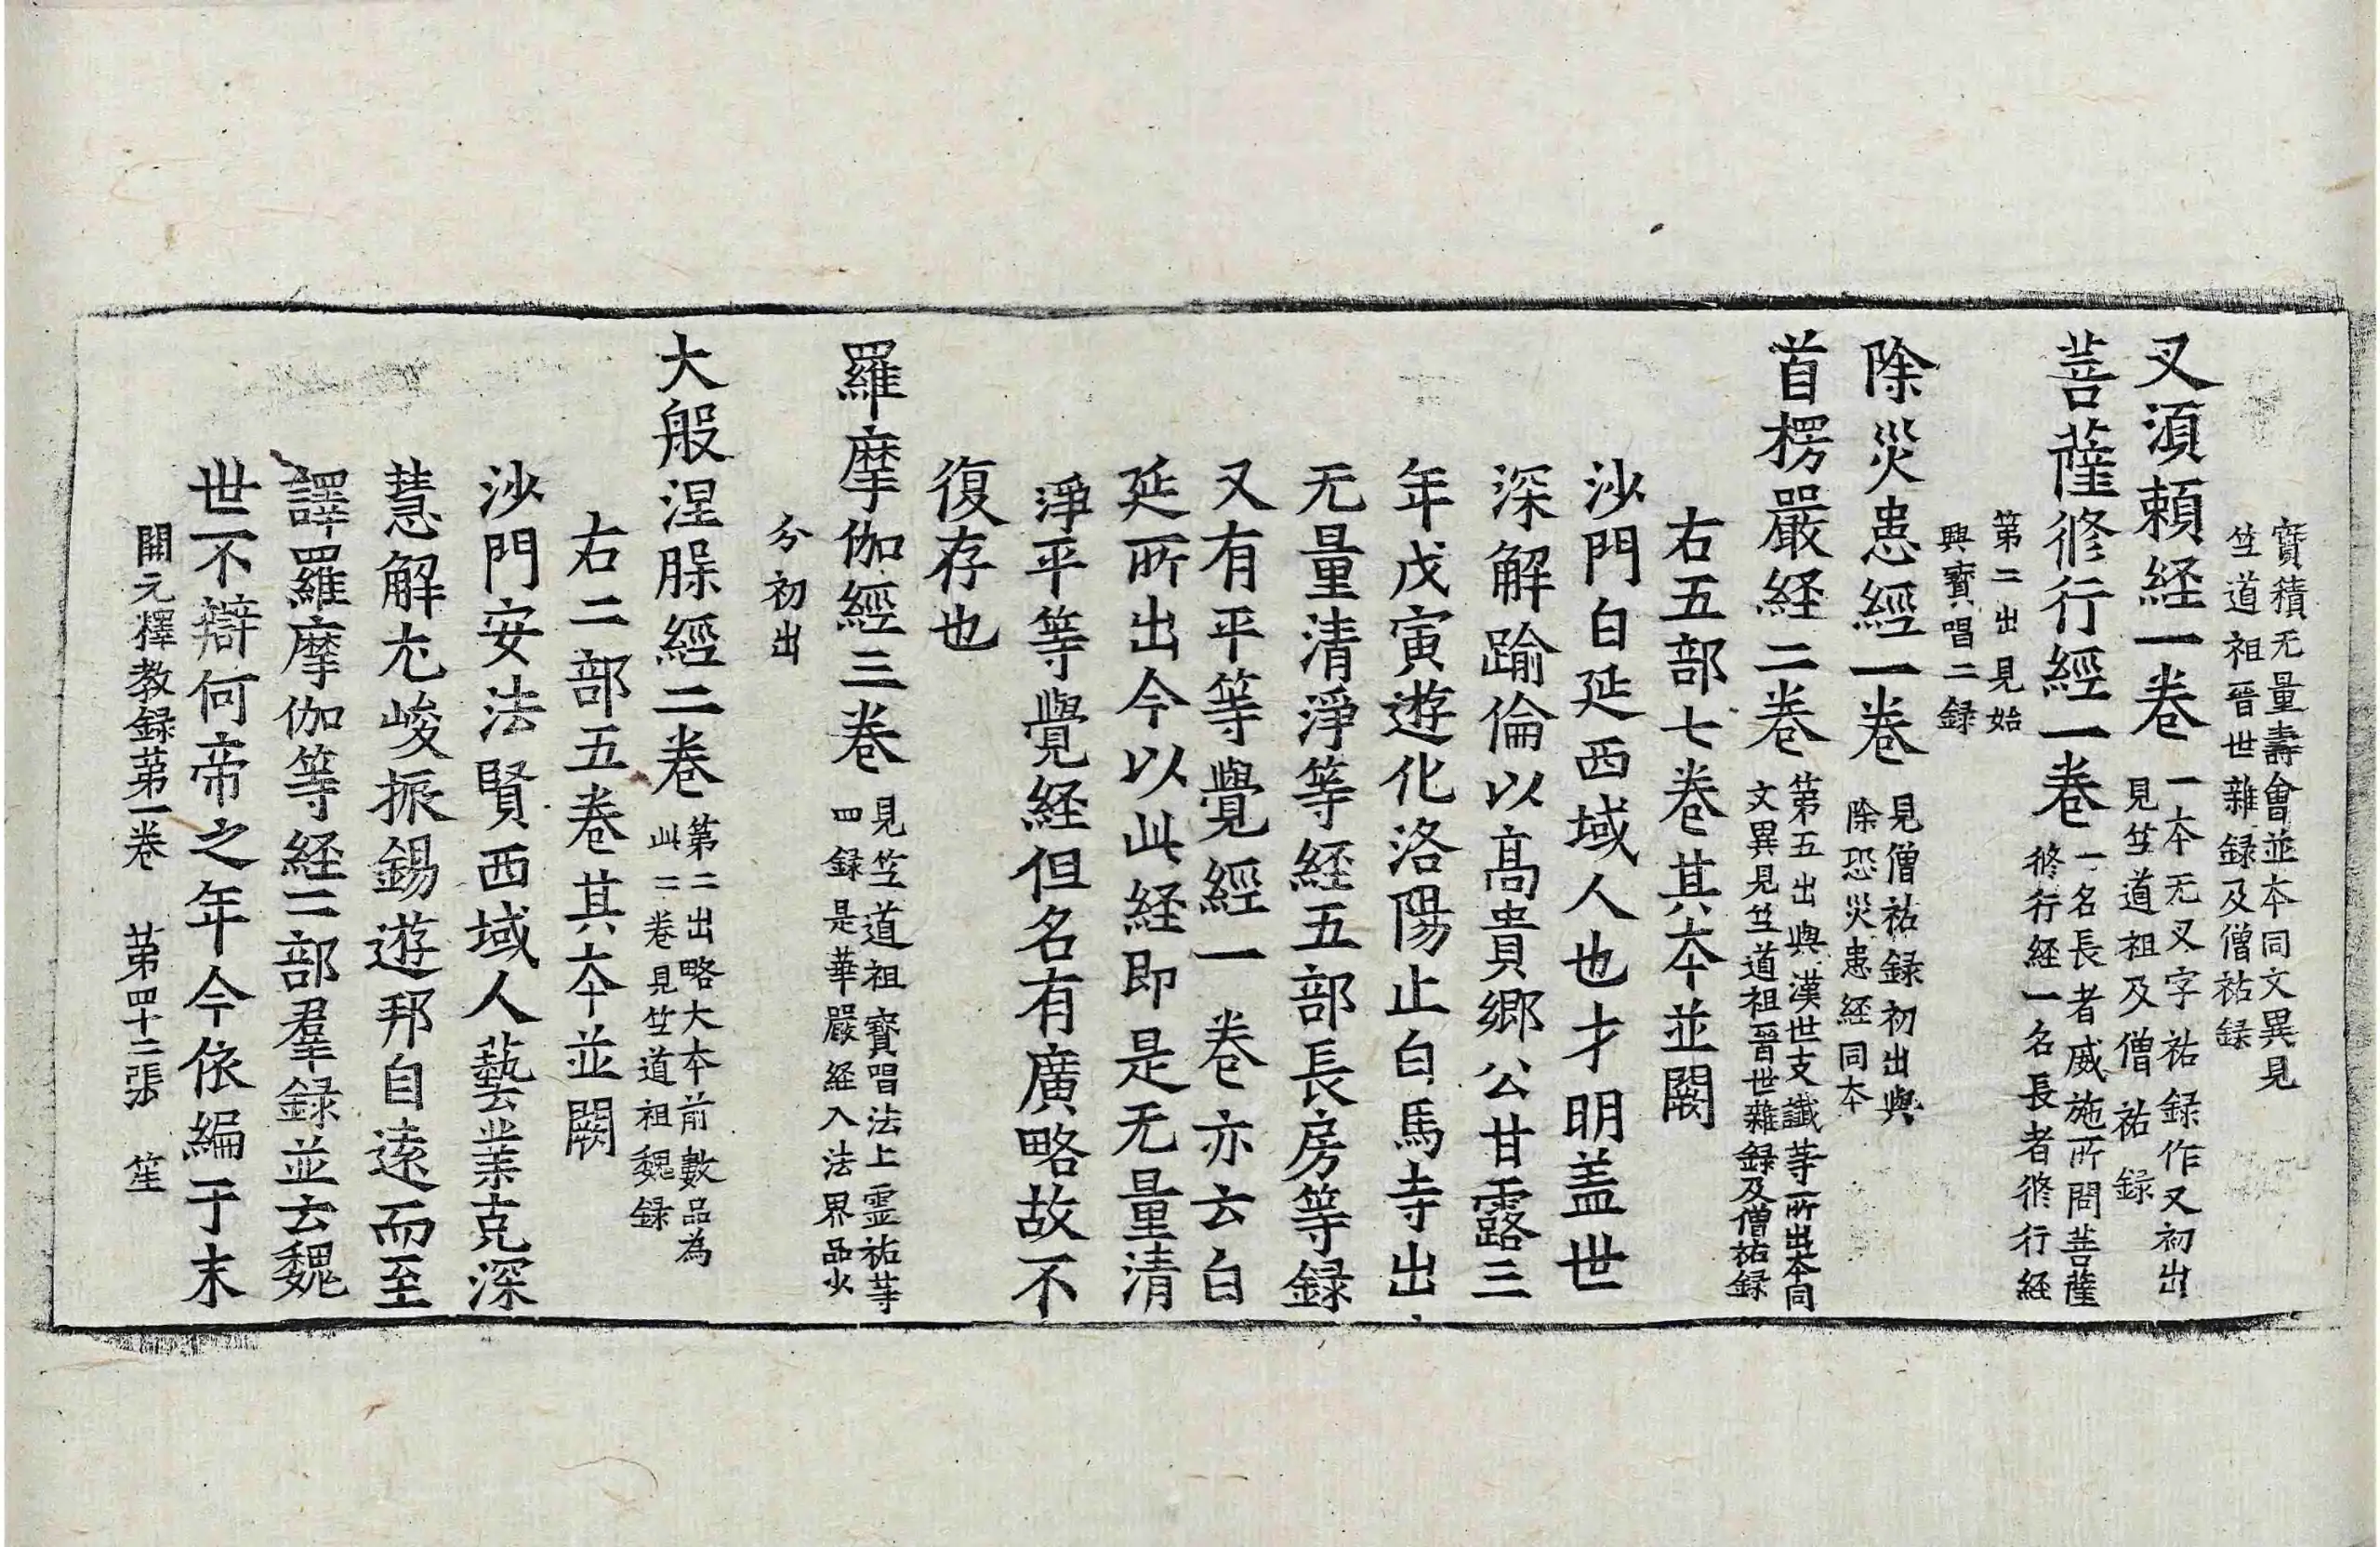 寶積无量壽會並本同文異見
竺道祖晉世雜録及僧祐録
叉湏頼経一卷
一本无叉字祐録作又初出
見竺道祖及僧祐録
菩薩修行經一卷
一名長者威施所問菩薩
修行経一名長者修行経
第二出見始
興寶唱二録
除災患經一卷
見僧祐録初出與
除恐災患経同本
首楞嚴経二卷
第五出與漢世支讖等所出本同
文異見竺道祖晉世雜録及僧祐録
右五部七卷其本並闕
沙門白延西域人也才明盖世
深解踰倫以髙貴郷公甘露三
年戊寅遊化洛陽止白馬寺出
无量清淨等経五部長房等録
又有平等覺經一卷亦云白
延所出今以此経即是无量清
淨平等覺経但名有廣略故不
復存也
羅摩伽經三卷
見竺道祖寶唱法上霊祐等
四録是華嚴経入法界品少
分初出
大般涅槃經二卷
第二出略大本前數品為
此二卷見竺道祖魏録
右二部五卷其本並闕
沙門安法賢西域人藝業克深
慧解尤峻振錫遊邦自遠而至
譯羅摩伽等経二部羣録並云魏
世不辯何帝之年今依編于末
開元釋教録苐一卷　苐四十二張　笙